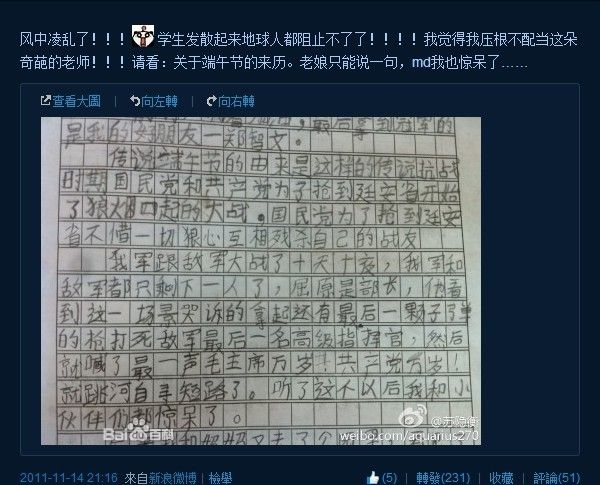 风中凌乱了！！！学生发散起来地球人都阻止不了了！！！！我觉得我压根不配当这朵
奇葩的老师！！！请看：关于端午节的来历。老娘只能说一句，md我也惊呆了……
查看大圖 | 向左轉 | 向右轉
最后拿到冠军的
是我的好朋友一郑智文。
传说端午节的由来是这样的传说抗战
时期国民党和共产党为了抢到廷安省开始
了狼烟四起的大战。国民党为了抢到廷安
省不惜一切狠心互相残杀自己的战友
我军跟敌军大战了十天十夜，我军和
敌军都只剩下一人了，屈原是部长，他看
到这一场景哭诉的拿起还有最后一颗子弹
的枪打死敌军最后一名高级指挥官，然后
就喊了最一声毛主席万岁！共产党万岁！
就跳河自寻短路了。听了这个以后我和小
伙伴们都惊呆了。
Bai百科
@苏隐衡
weibo.com/aquarius270
2011-11-14 21:16 來自新浪微博 | 檢舉
(5) | 轉發(231) | 收藏 | 評論(51)